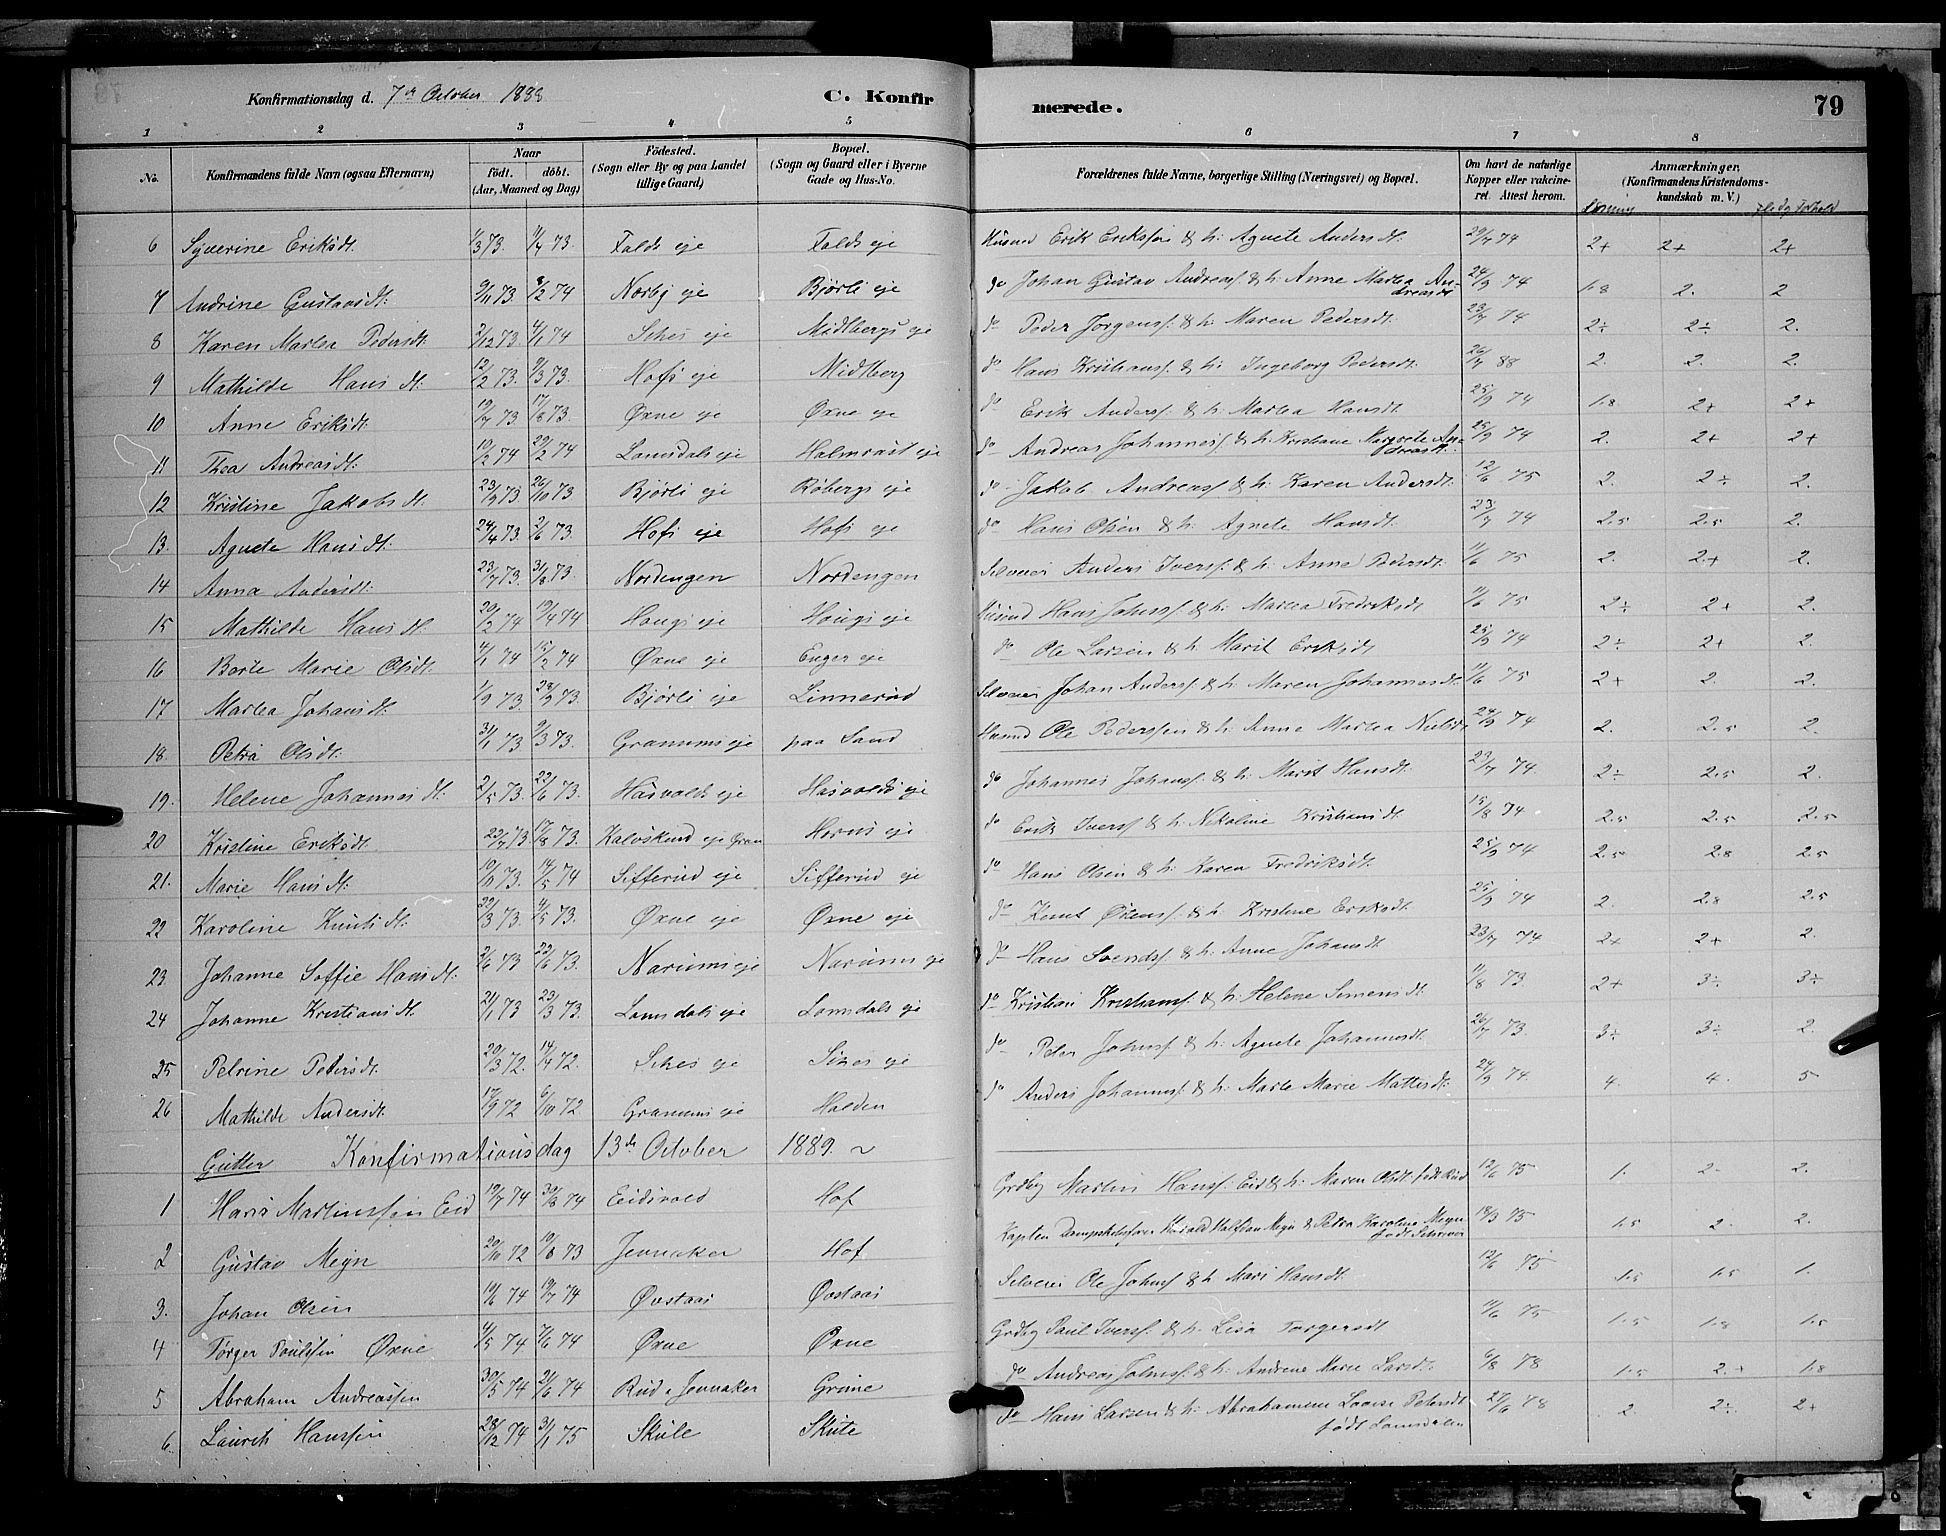 Konfirmationsdag d. 7de October 1888 C. Konfirmerede. 79
1 2 3 4 5 6 7 8
No. Konfirmandens fulde Navn (ogsaa Efternavn) Naar födt. döbt. (Aar, Maaned og Dag) Födested. (Sogn eller By og paa Landet tillige Gaard) Bopæl. (Sogn og Gaard eller i Byerne Gade og Hus-No. Forældrenes fulde Navne, borgerlige Stilling (Næringsvei) og Bopæl. Om havt de naturlige Kopper eller vakcineret. Attest herom. Anmærkninger, (Konfirmandens Kristendomskundskab m. V.)
6 Syverine Eriksdt. 1/3 73. 11/4 73. Falds eje Falds eje Husmd Erik Eriksen & h. Agnete Andersdt. 29/7 74 2+ 2+ 2+
7 Andrine Gustavsdt. 9/11 73. 8/2 74 Norby eje Bjørli eje do Johan Gustav Andreass. & h. Anne Marlea Andreasdt 24/9 74 1.8 2. 2
8 Karen Marlea Pedersdt. 2/12 73. 4/1 74 eje Midlbergs eje do Peder Jørgens. & h. Maren Pedersdt. 23/7 74 2÷ 2÷ 2.
9 Mathilde Hansdt. 12/2 73. 9/3 73. Hofs eje Midlberg do Hans Kristians. & h. Ingeborg Pedersdt. 26/7 88 2. 2. 2.
10 Anne Eriksdt. 19/7 73. 17/8 73. Øxne eje Øxne eje do Erik Anders. & h. Marlea Hansdt. 25/9 74 1.8 2+ 2+
11 Thea Andreasdt. 10/2 74 29/2 74 Lomsdals eje Halmrast eje do Andreas Johannes. & h. Kristiane Margrete Andreasdt. 25/9 74 2. 2+ 2+
12 Kristine Jakobsdt. 23/9 73 26/10 73 Bjørli eje Røbergs eje do Jakob Andreas. & h. Karen Andersdt. 12/6 75 2. 2÷ 2.
13. Agnete Hansdt. 24/4 73. 2/6 73. Hofs eje Hofs eje do Hans Olsen & h. Agnete Hansdt. 23/7 74 2.5 2.5 2.
14 Anna Andersdt. 23/7 73. 31/8 73. Nordengen Nordengen Selveier Anders Ivers. & h. Anne Pedersdt. 11/6 75 2. 2+ 2.
15 Mathilde Hansdt. 20/2 74 19/4 74 Haugs eje Haugs eje Husmd Hans Johns. & h. Marlea Frederiksdt 11/6 75 2÷ 2+ 2.
16 Borte Marie Olsdt. 4/1 74 15/2 74 Øxne eje Enger eje do Ole Larsen & h. Marit Eriksdt 25/9 74 2÷ 2+ 2.
17 Marlea Johansdt. 1/9 73. 28/9 73. Bjørli eje Linnerud Selveier Johan Anders. & h. Maren Johannesdt. 11/6 75 2+ 2. 2.
18. Petra Olsdt. 31/1 73 9/3 73. Granums eje paa Sand Husmd Ole Pederssen & h. Anne Marlea Nielsdt 24/9 74 2. 2.5 2.
19. Helene Johannesdt. 2/5 73. 22/6 73. Hasvolds eje Hasvolds eje do Johannes Johans. & h. Marit Hansdt. 23/7 74. 2÷ 2.5 2.
20 Kristine Eriksdt. 22/7 73. 17/8 73. Kalvskind eje Gran Horns eje do Erik Ivers. & h. Nikoline Kristiansdt 15/8 74 2.5 2.5 2.5
21. Marie Hansdt. 10/11 73. 14/5 74 Sifferud eje Sifferud eje do Hans Olsen & h. Karen Fredriksdt. 25/9 74 2.5 2.8 2.5
22 Karoline Knutsdt. 22/3 73. 4/5 73. Øxne eje Øxne eje do Knut & h. Kristine Eriksdt. 25/9 74 2. 2.8 2.5
23. Johanne Soffie Hansdt. 2/6 73 22/6 73. Narums eje Narums eje do Hans Svends. & h. Anne Johansdt 23/7 74 2+ 2+ 2.
24 Johanne Kristiansdt. 21/1 73 23/3 73. Lomsdals eje Lomsdals eje do Kristian Kristians. & h. Helene Simensdt. 11/8 73. 2+ 3÷ 3÷
25 Petrine Petersdt. 20/3 72. 14/4 72. eje eje do Peter Johns. & h. Agnete Johannesdt. 26/7 73. 3÷ 3÷ 2.
26 Mathilde Andersdt. 17/9 72 6/10 72 Granums eje Halden do Anders Johanness. & h. Marte Marie Mattisdt. 24/9 74. 4. 4. 5
Gutter Konfirmationsdag 13de October 1889.
1 Hans Martinssen Eid 19/7 74 30/8 74 Eidsvold Hof Grdbg Martin Hans. Eid & h. Maren Olsdt. født Rud 12/6 75 1. 2. 2.
2 Gustav Megn 20/10 72 10/8 73 Jevnaker Hof Kaptein Dampskibsfører Harald Halfdan Megn & Petra Karoline Megn født Schriver 18/3 75 1.5 2. 2.
3. Johan Olsen 10/6 74 19/7 74 Øvstaas Øvstaas Selveier Ole Johns. & h. Mari Hansdt. 12/6 75 1.5 1.5 1.
4 Torger Poulssen Øxne 4/5 74 7/6 74 Øxne Øxne Grdbg Paul Ivers. & h. Lisa Torgersdt 11/6 75 1.5 1.8 1.5
5 Abraham Andreassen 30/5 74 21/6 74 Rud i Jevnaker Grime do Andreas Johns. & h. Andrene Marie Larsdt. 6/8 78 1.5 2.+ 1.8
6. Laurits Hanssen 28/12 74 3/1 75 Skute Skute do Hans Larsen & h. Abrahamine Lovise Petersdt født Lomsdalen 21/6 78 2. 2÷ 2+